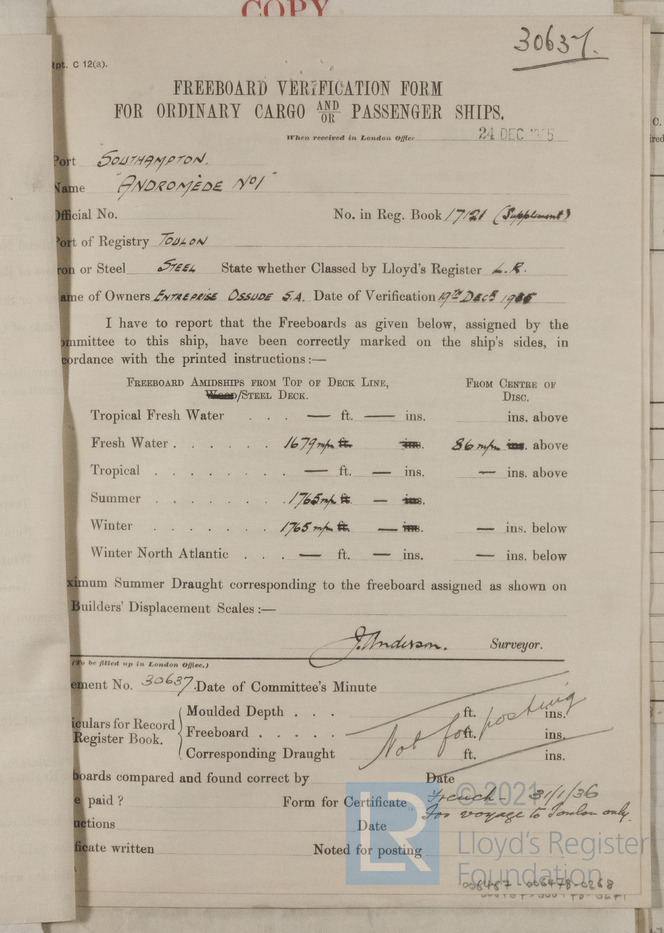 COPY
30637.
Rpt. C 12(a).
FREEBOARD VERIFICATION FORM
FOR ORDINARY CARGO AND/OR PASSENGER SHIPS.
When received in London Office 24 DEC 1935
Port SOUTHAMPTON.
Name "ANDROMÈDE No1"
Official No. No. in Reg. Book 17121 (Supplement)
Port of Registry TOULON
ron or Steel STEEL State whether Classed by Lloyd's Register L.R.
ame of Owners ENTREPRISE OSSUDE S.A. Date of Verification 19th Decr 1935
I have to report that the Freeboards as given below, assigned by the
ommittee to this ship, have been correctly marked on the ship's sides, in
cordance with the printed instructions:—
FREEBOARD AMIDSHIPS FROM TOP OF DECK LINE, FROM CENTRE OF
WOOD/STEEL DECK. DISC.
Tropical Fresh Water . . . — ft. — ins. ins. above
Fresh Water . . . . . 1679 m/m ft. ins. 86 m/m ins. above
Tropical . . . . . . . — ft. — ins. — ins. above
Summer . . . . . . . 1765 m/m ft — ins.
Winter . . . . . . 1765 m/m ft. — ins. — ins. below
Winter North Atlantic . . . — ft. — ins. — ins. below
ximum Summer Draught corresponding to the freeboard assigned as shown on
Builders' Displacement Scales :—
J. Anderson. Surveyor.
(To be filled up in London Office.)
ement No. 30637. Date of Committee's Minute
Moulded Depth . . . ft. ins.
iculars for Record Freeboard . . . . . ft. ins.
Register Book. Corresponding Draught ft. ins.
Not for posting
boards compared and found correct by Date
e paid ? Form for Certificate French. 31/1/36
For voyage to Toulon only.
uctions Date
ficate written Noted for posting
© 2021
LR
Lloyd's Register
Foundation
006467-006478-0268